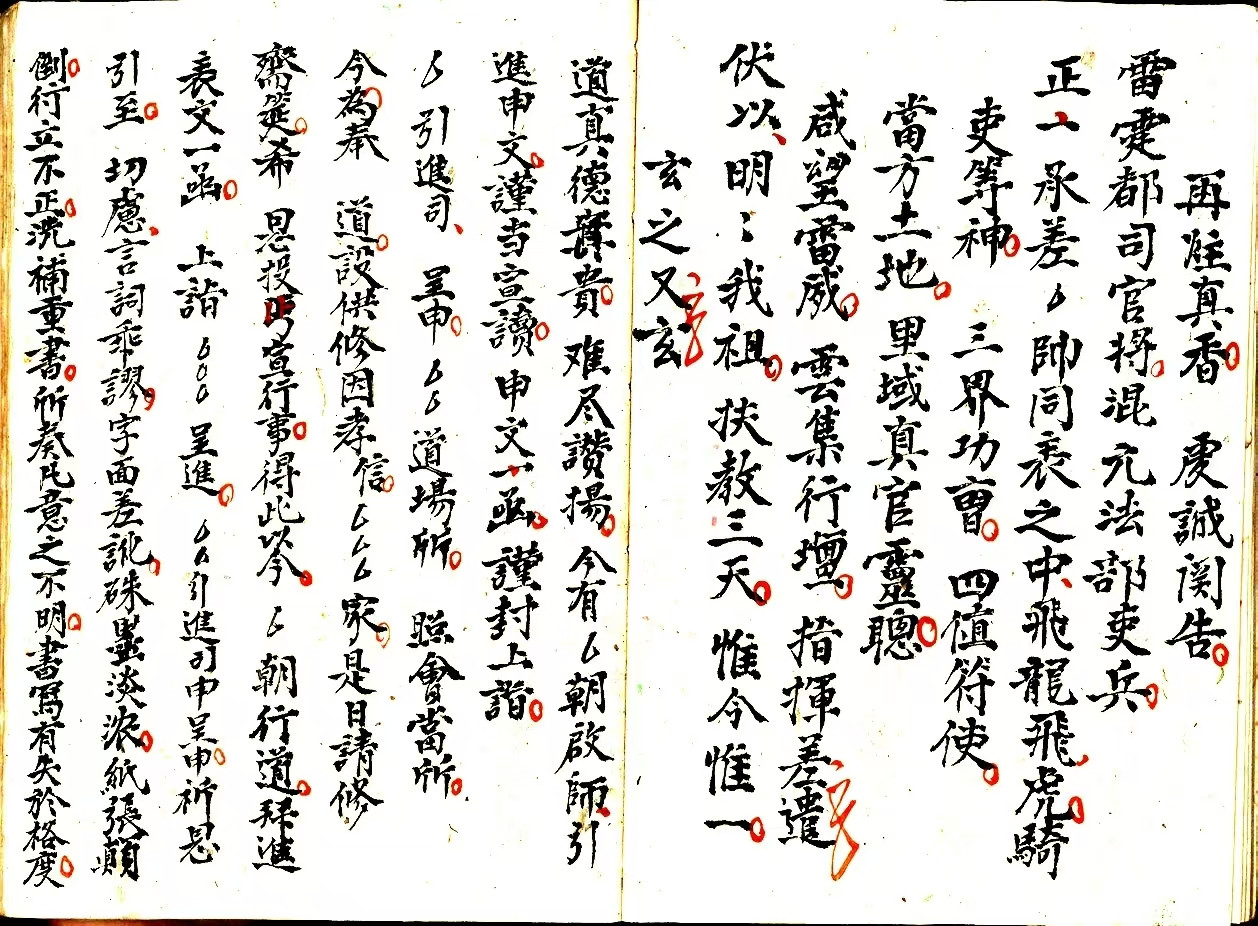 再炷真香 虔誠関告
雷霆都司官將混元法部吏兵
正一承差ㄥ帥同表之中飛龍飛虎騎
吏等神 三界功曹 四值符使
當方土地 里域真官靈聰
咸望雷威 雲集行壇 指揮差遣
伏以明〻我祖 扶教三天 惟今惟一
玄之又玄
道真德貴 难尽讚揚 今有ㄥ朝啟師引
進申文謹当宣讀 申文一函謹封上詣
ㄥ引進司 呈申ㄥㄥ道場所 照會當所
今為奉 道設供修因孝信ㄥㄥㄥ家是日請修
齋筵希 恩投 宣行事得此以今ㄥ朝行道拜進
表文一函 上詣ㄥㄥㄥ呈進ㄥㄥ引進司申呈申祈恩
引至 切慮言詞乖謬字面差訛硃墨淡濃紙張顛
倒行立不正洗補重書所奏民意之不明書寫有失於格度